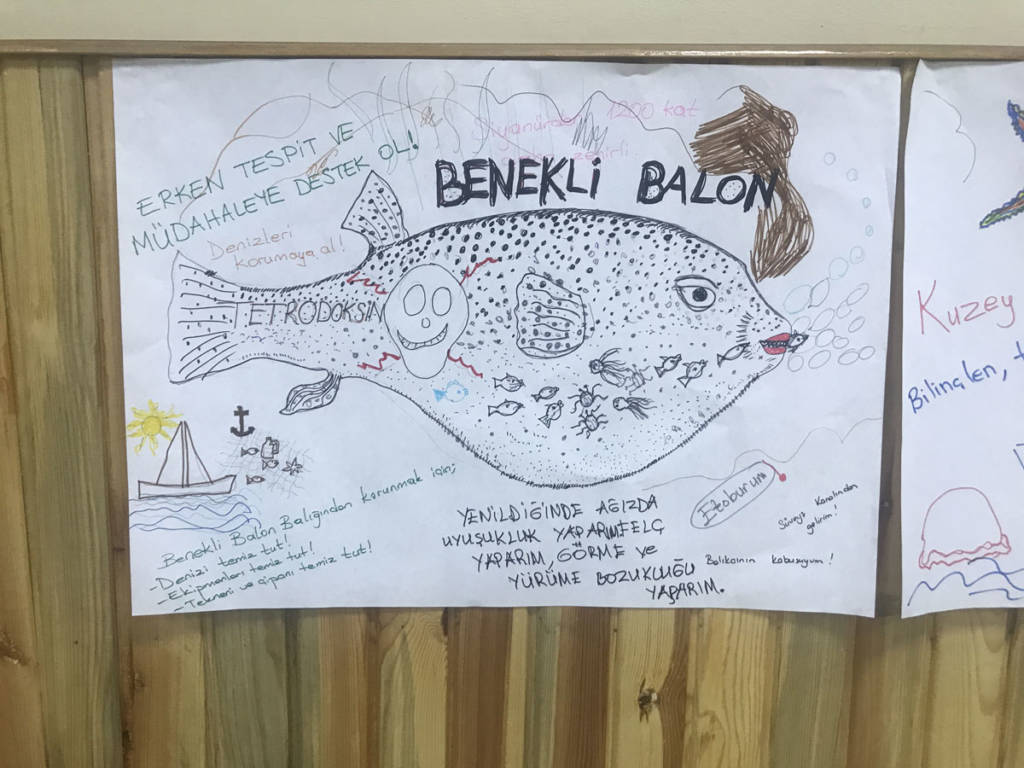 ERKEN TESPİT VE
MÜDAHALEYE DESTEK OL!
Denizleri
korumaya al!
Siyanürden 1200 kat
zehirli.
BENEKLİ BALON
TETRODOKSİN
Benekli Balon Balığından korunmak için;
- Denizi temiz tut!
- Ekipmanları temiz tut!
- Tekneni ve çipanı temiz tut!
YENİLDİĞİNDE AĞIZDA
UYUŞUKLUK YAPARIM, FELÇ
YAPARIM, GÖRME ve
YÜRÜME BOZUKLUĞU
YAPARIM.
Etoburum
Süveyş Kanalından
gelirim!
Balıkçının kabusuyum!
Kuzey
Bilinçlen,